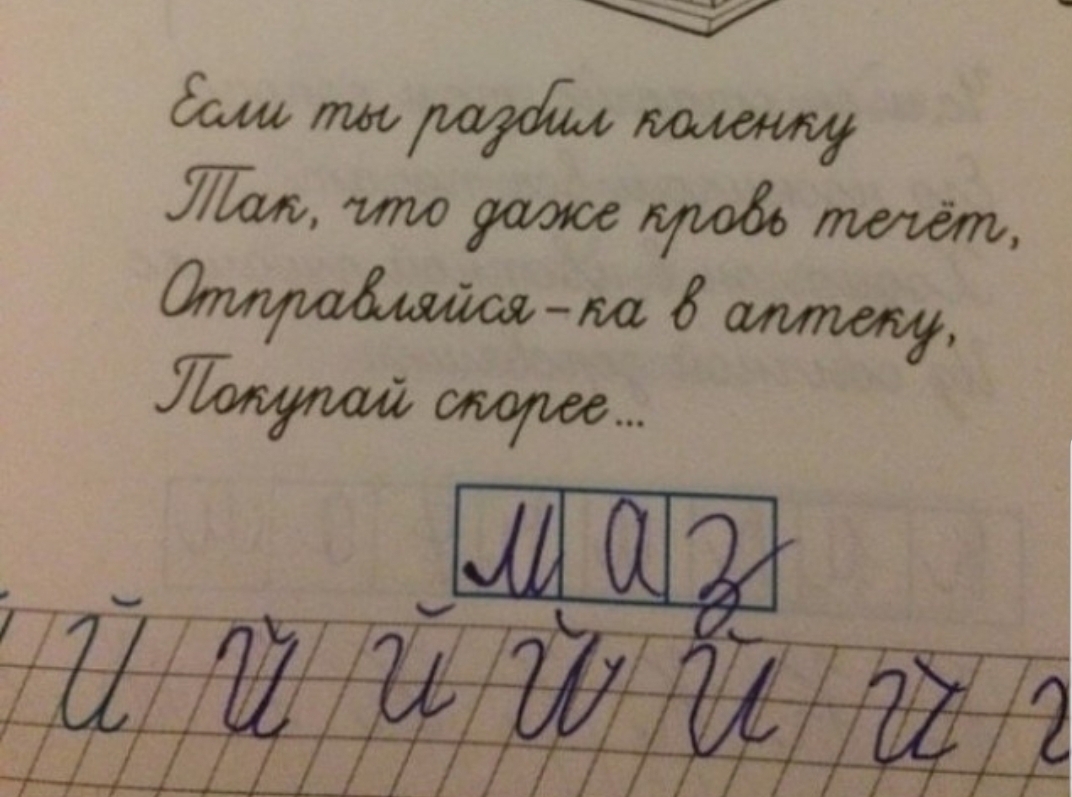 Если ты разбил коленку
Так, что даже кровь течёт,
Отправляйся-ка в аптеку,
Покупай скорее...
маз
Й Й й Й Й Й